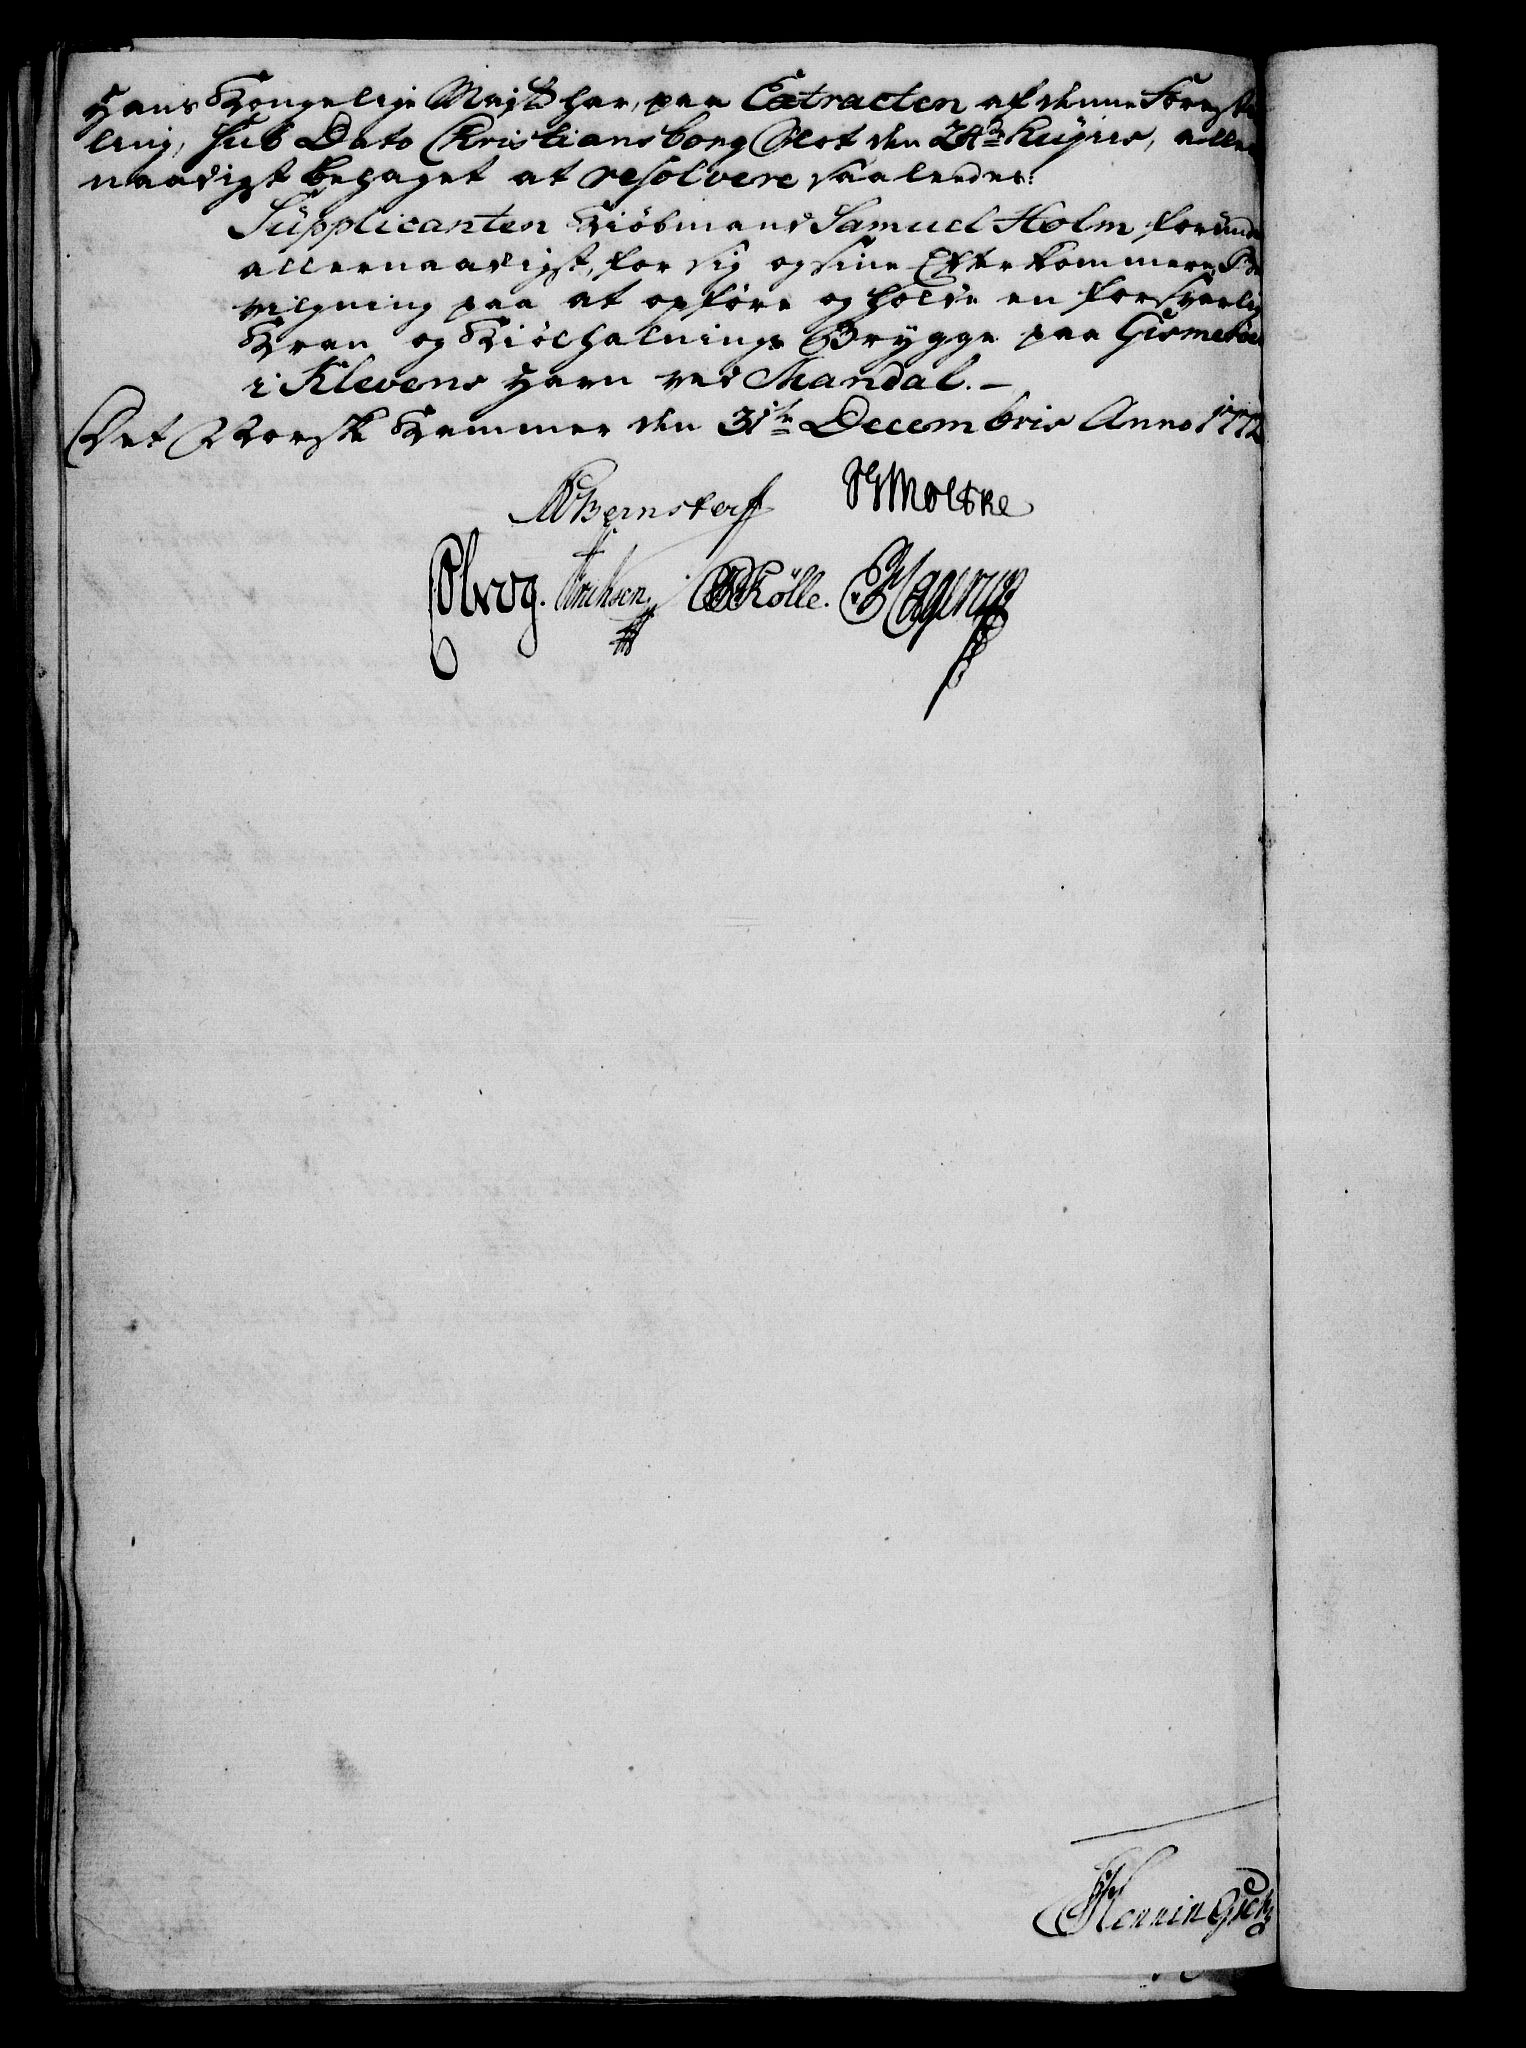 Hans Kongelige Majst. har, paa Extracten af denne Forestil
ling, sub Dato Christiansborg Slot den 24de hujus, aller
naadigst behaget at resolvere saaledes:
Supplicanten Kiöbmand Samuel Holm forundes
allernaadigst, for sig og sine Efterkommere, Be
vilgning paa at opföre og holde en forsvarlig
Kran og Kiölhalnings Brygge paa
i Klevens Havn ved Mandal. –
Det Norske Kammer den 31te Decembris Anno 1772
Bernstorff Moltke
Erichsen. Rölle. Hagerup